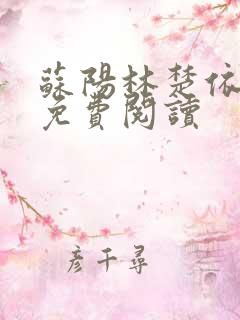 蘇陽林楚依
免費閱讀
彥千尋